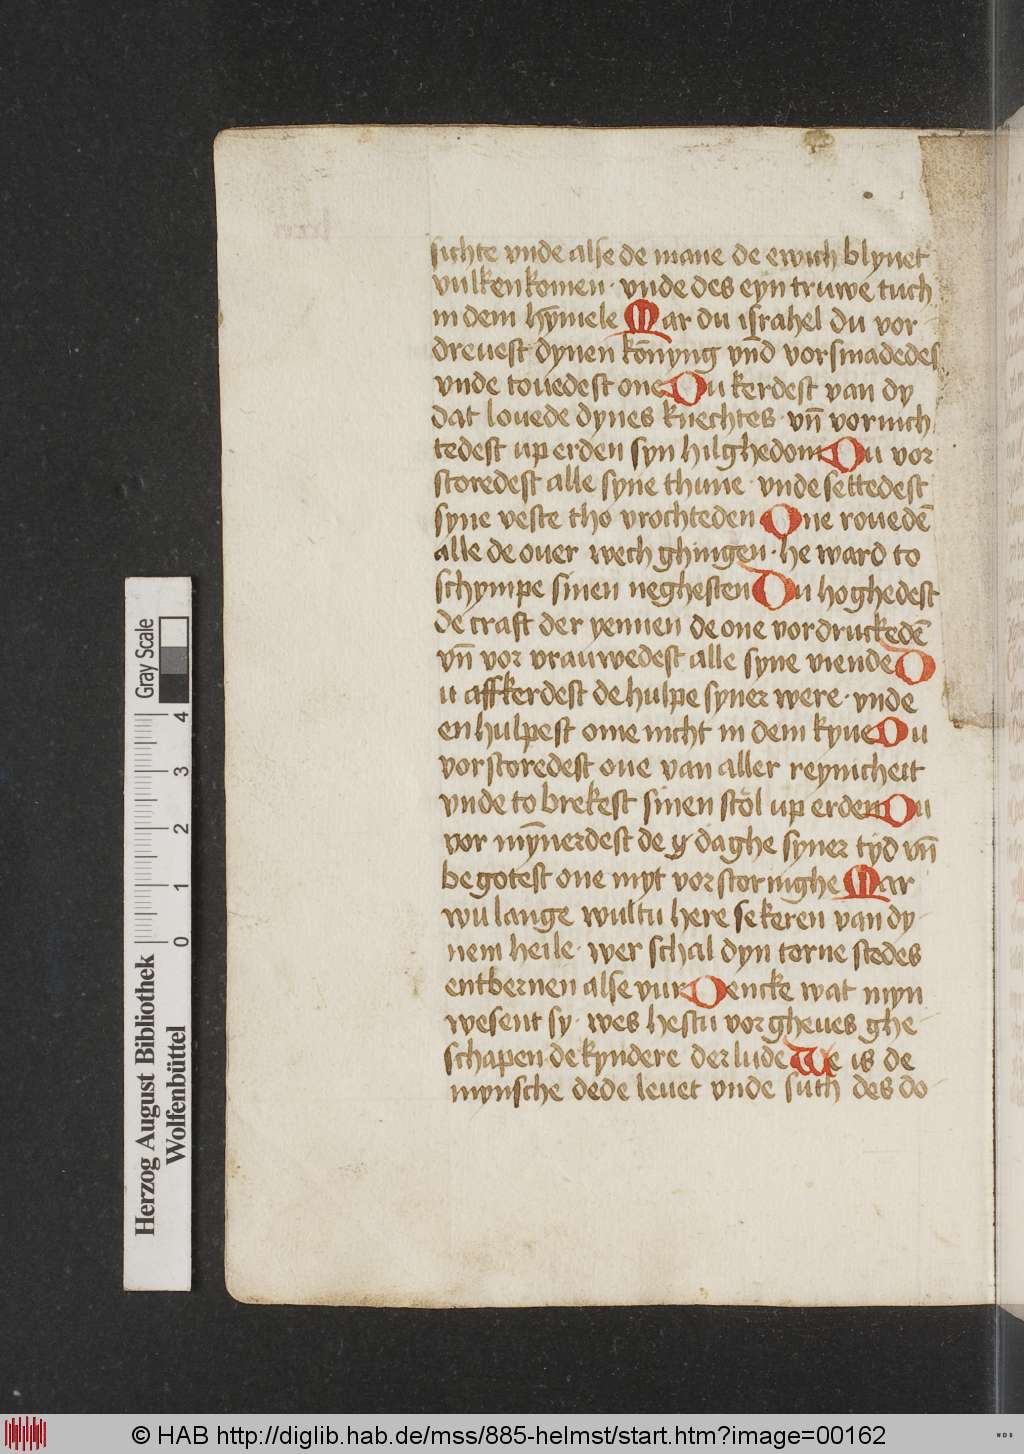 sichte vnde alse de mane de ewich blyuet
vulkenkomen · vnde des eyn truwe tuch
in dem hȳmele Mar du israhel du vor
dreuest dynen kōnyng vn̄d vorsmadedes
vnde touedest one Du kerdest van dy
dat louede dynes knechtes · vn̄ vornich
tedest up erden syn hilghedom Du vor
storedest alle syne thune · vnde settedest
syne veste tho vrochteden One rouedē
alle de ouer wech ghingen · he ward to
schympe sinen neghesten Du hoghedest
de craft der yennen de one vordruckedē
vn̄ vor vrauwedest alle syne viende D
u affkerdest de hulpe syner were · vnde
en hulpest ome nicht in dem kyue Du
vorstoredest one van aller reynicheit
vnde to brekest sinen stol up erden Du
vor mȳnerdest de daghe syner tyd vn̄
begotest one myt vorstornighe Mar
wu lange wultu here se keren van dy
nem heile · wer schal dyn torne stedes
entbernen alse vur Dencke wat myn
wesent sy · wes hestu vorgheues ghe
schapen de kyndere der lude We is de
mynsche dede leuet vnde suth des do
Gray Scale
4
3
2
1
0
Herzog August Bibliothek
Wolfenbüttel
© HAB http://diglib.hab.de/mss/885-helmst/start.htm?image=00162